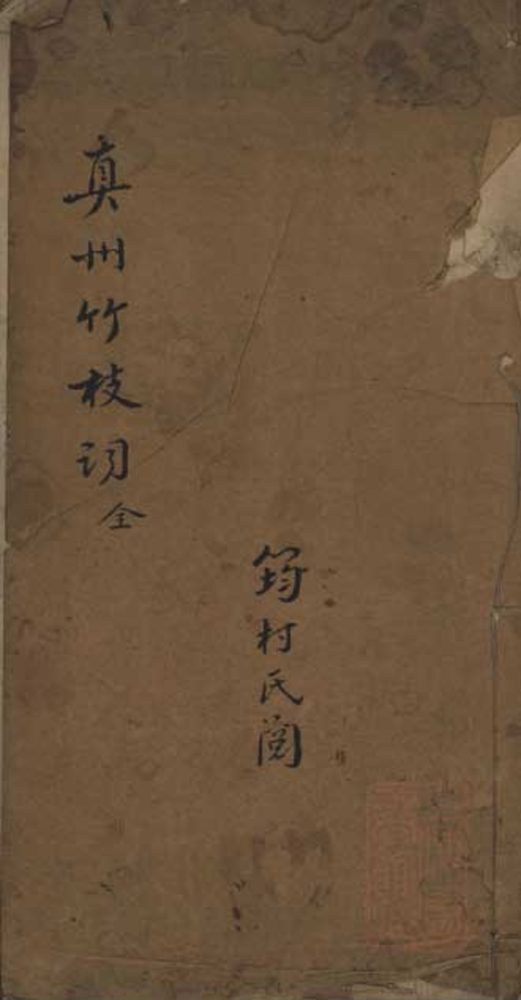 真州竹枝词全
筠村氏